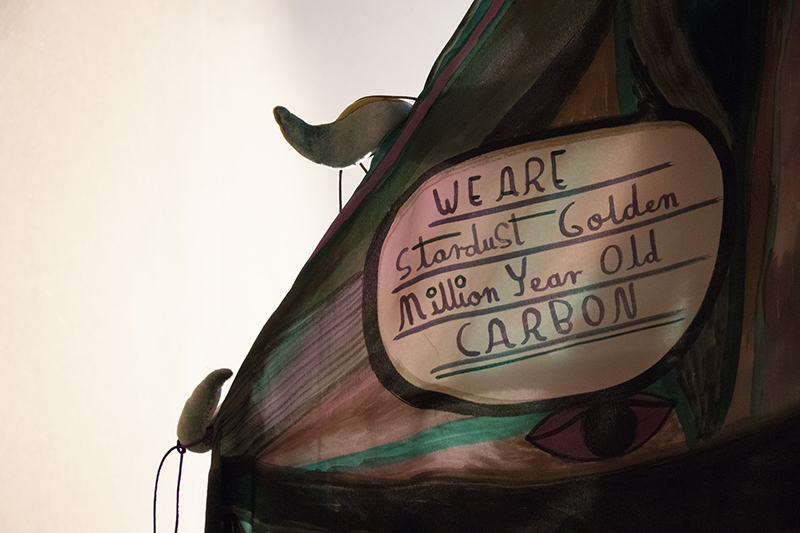 WE ARE
Stardust Golden
Million Year Old
CARBON